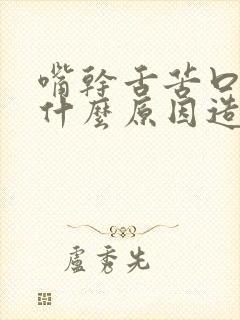 嘴幹舌苦口
什麼原因造
盧秀先